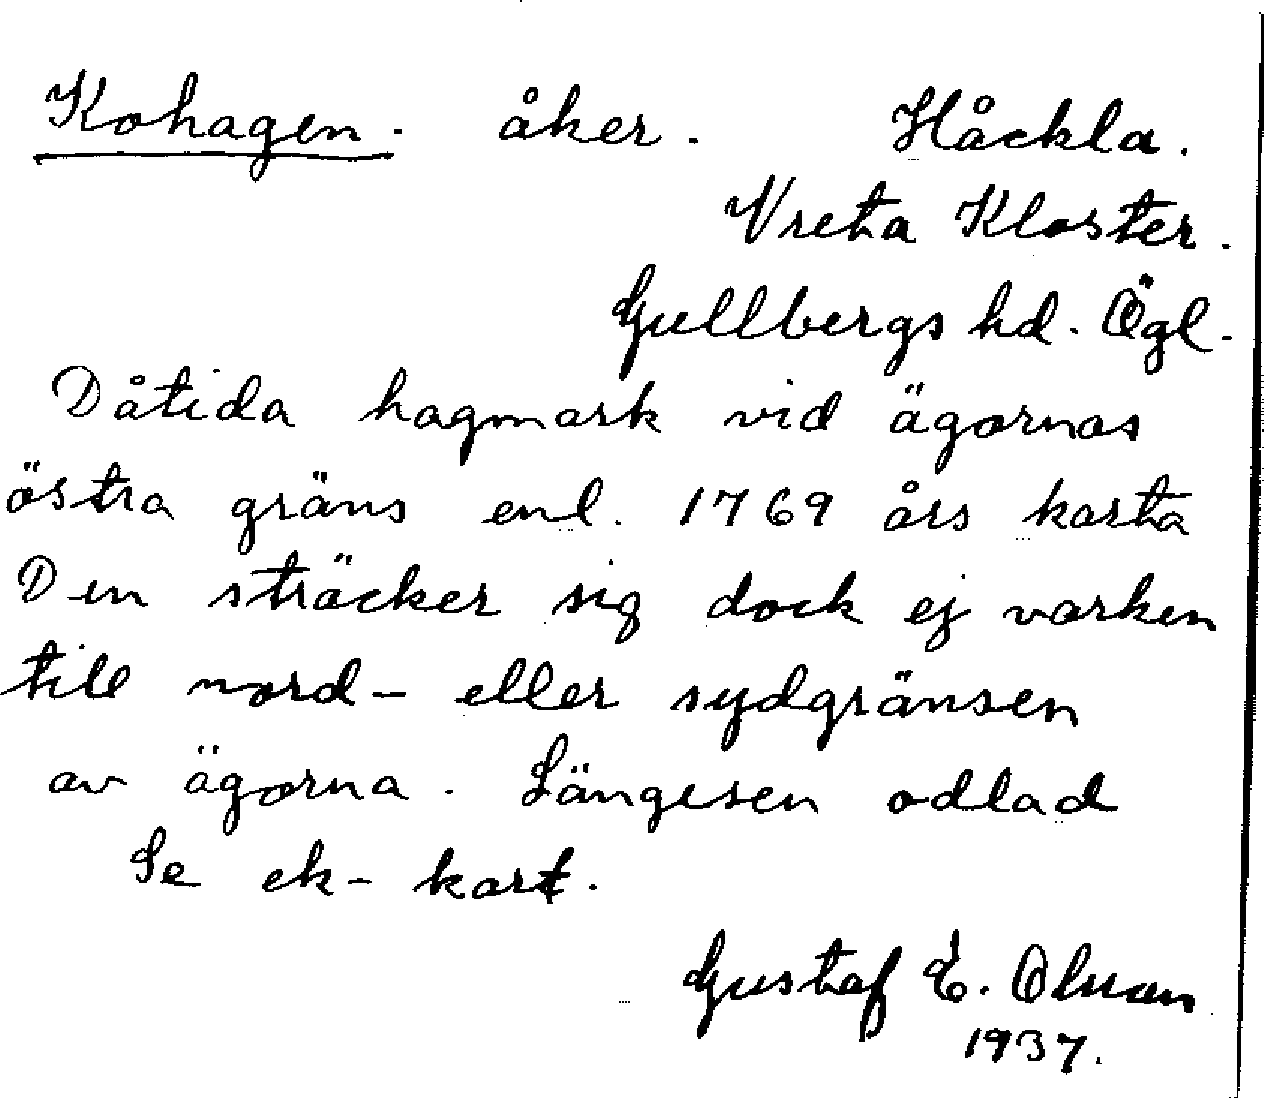 Kohagen. åker. Håckla.
Vreta Kloster.
Gullbergs hd. Ögl.
Dåtida hagmark vid ägornas
östra gräns enl. 1769 års karta
Den sträcker sig dock ej varken
till nord- eller sydgränsen
av ägorna. Längesen odlad
Se ek-kart.
Gustaf E. Olsson
1937.